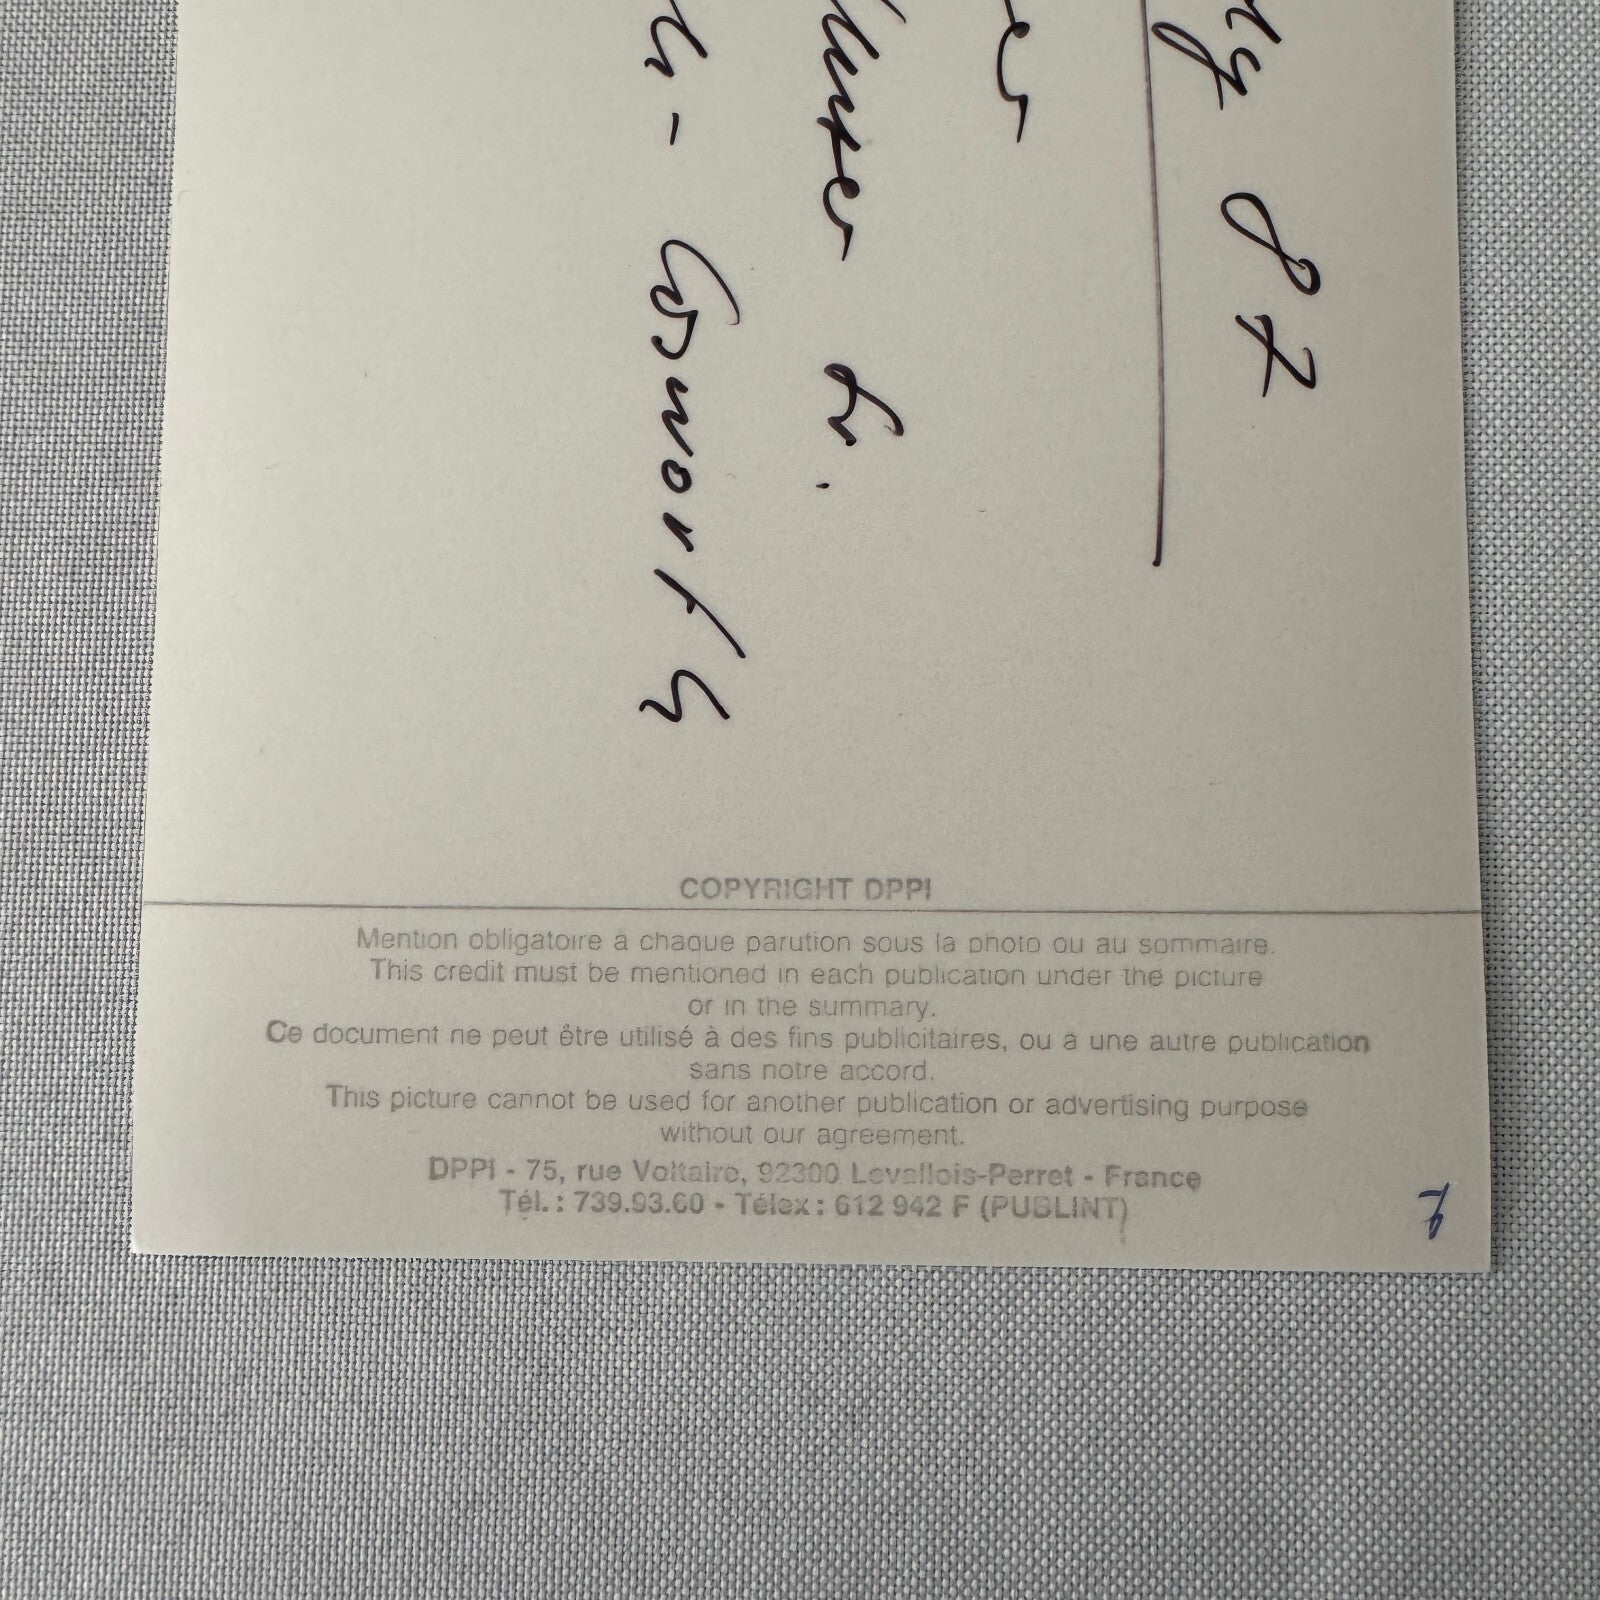 87
Unser Jr.
- Cosworth
COPYRIGHT DPPI
Mention obligatoire a chaque parution sous la photo ou au sommaire.
This credit must be mentioned in each publication under the picture
or in the summary.
Ce document ne peut être utilisé à des fins publicitaires, ou a une autre publication
sans notre accord.
This picture cannot be used for another publication or advertising purpose
without our agreement.
DPPI - 75, rue Voltaire, 92300 Levallois-Perret - France
Tél.: 739.93.60 - Télex: 612 942 F (PUBLINT)